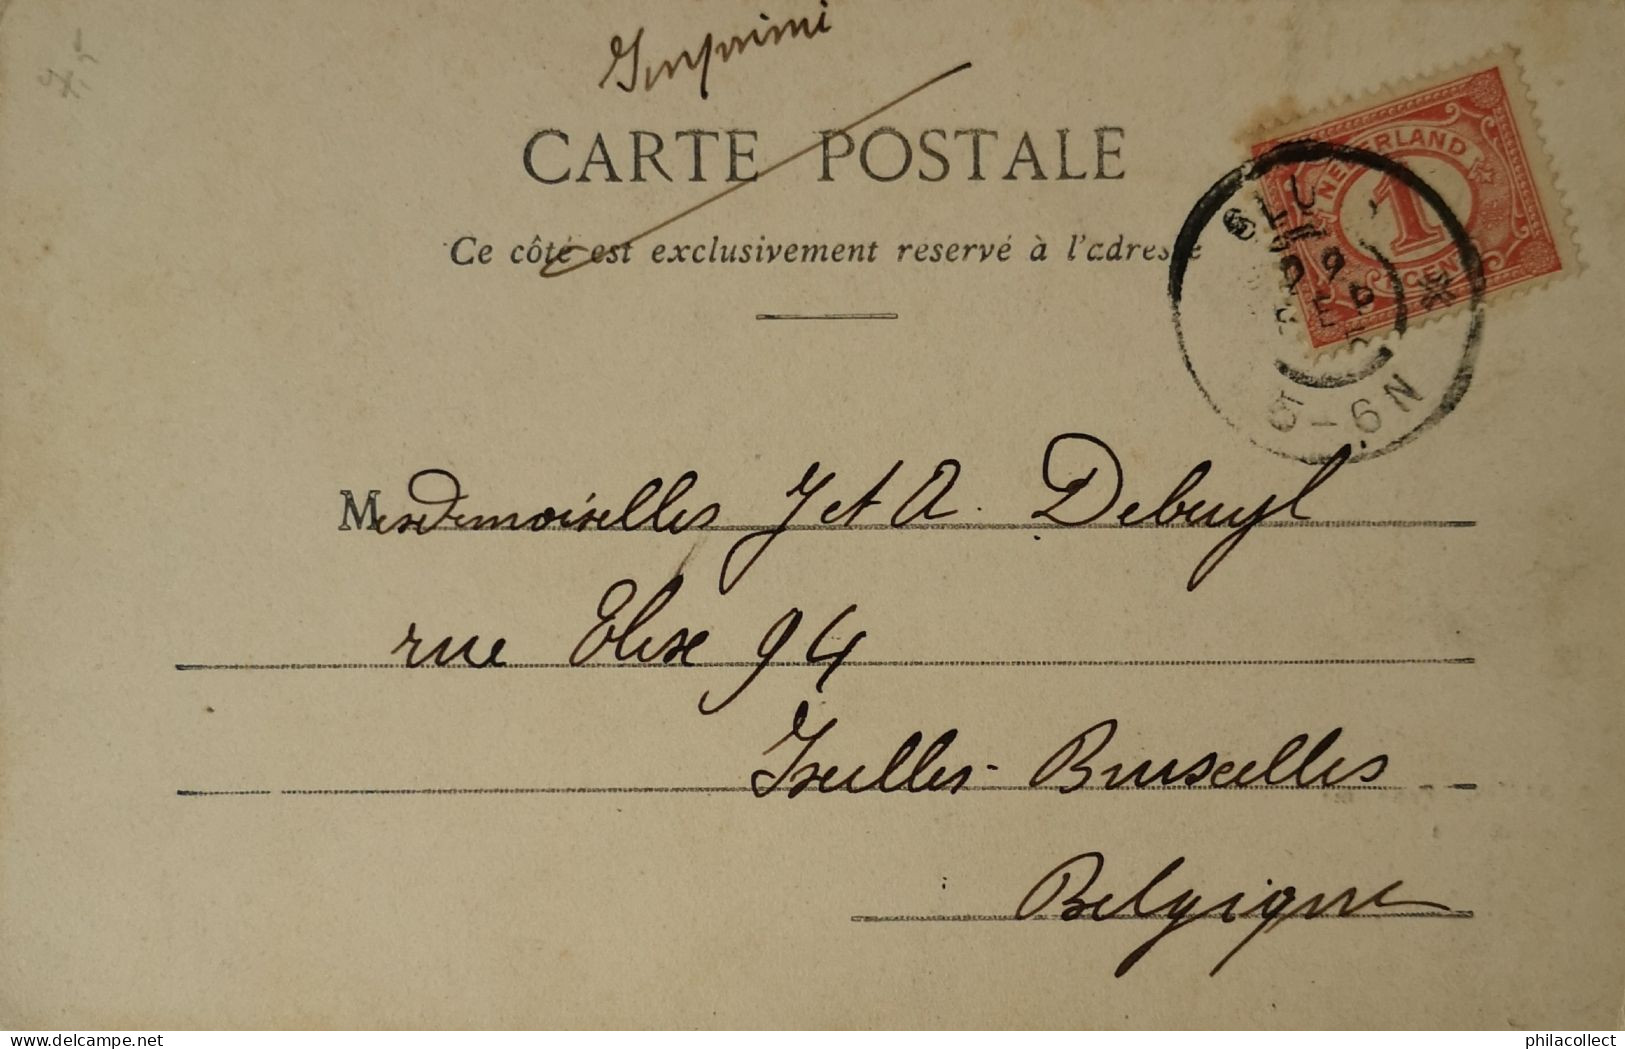 Imprimé
CARTE POSTALE
Ce côté est exclusivement réservé à l'adresse
NEDERLAND
1
CENT
SLU
5-6N
Mesdemoiselles J et A. Debuyl
rue Elise 94
Ixelles-Bruxelles
Belgique
philacollect